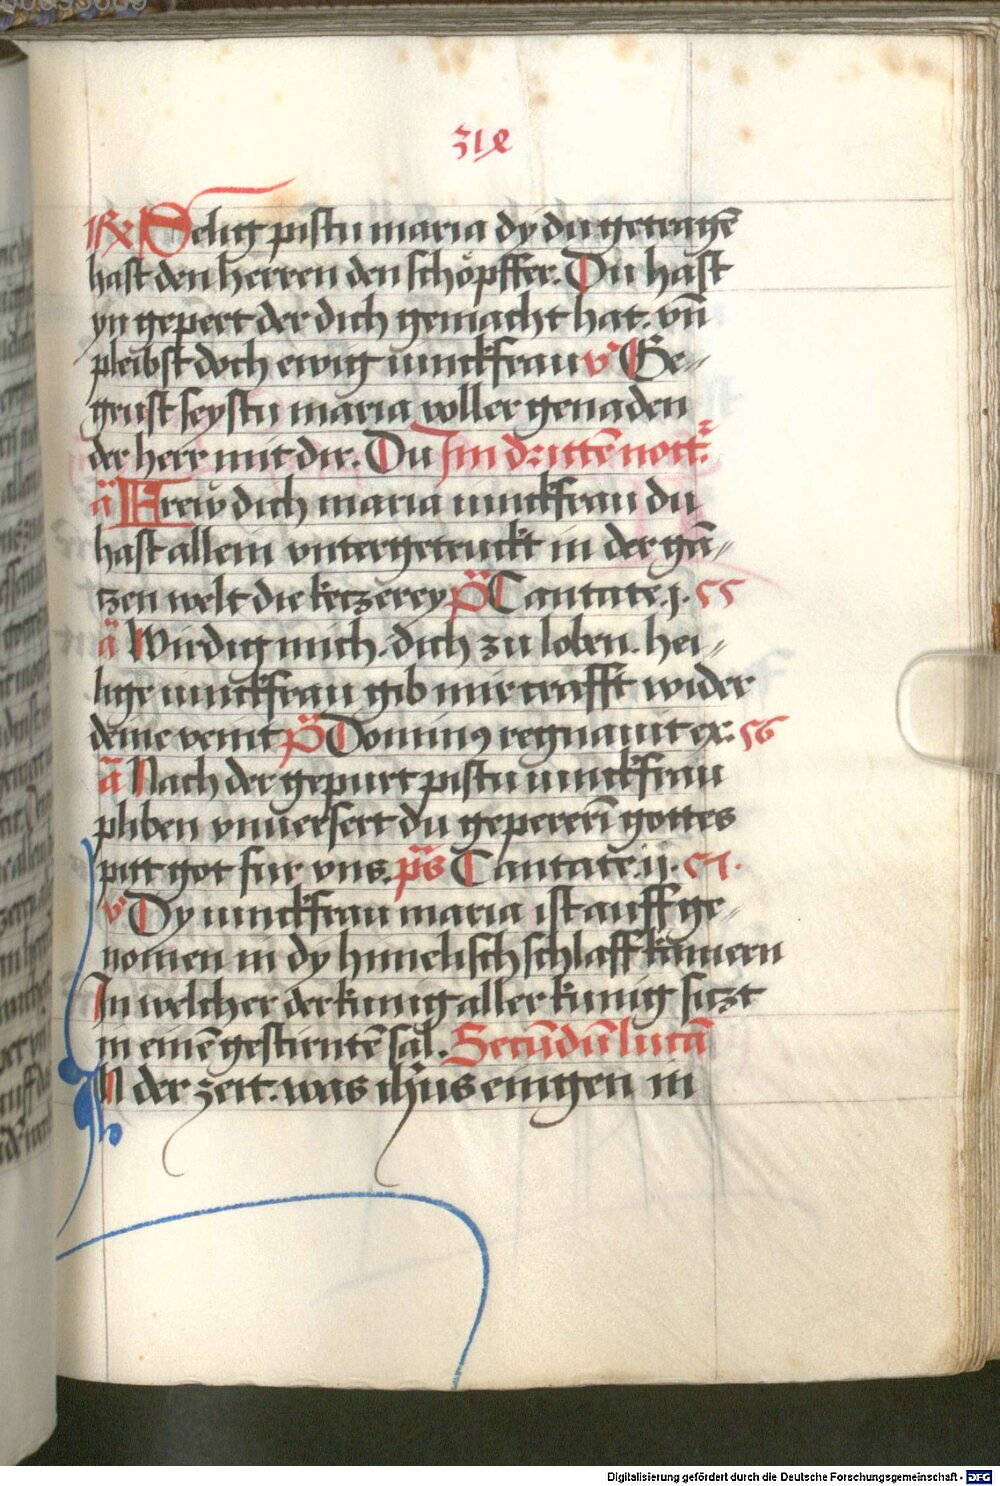 31x
R Selig pistu maria dy du getragē
hast den herren den schöpffer. Du hast
yn gepert der dich gemacht hat. vn̄
pleibst doch ewig iunckfrau v̊ Ge⸗
grust seystu maria voller genaden
der herr mit dir. Du Im drittē nott̾.
ā Frew dich maria iunckfrau du
hast allein vntergetruckt in der gā⸗
tzen welt die ketzerey p̄s Cantate .j. 55
ā Wirdig mich. dich zu loben. hei⸗
lige iunckfrau gib mir crafft wider
deine veint p̄s Dominꝰ regnauit ex: 56
ā Nach der gepurt pistu iunckfrau
pliben vnuersert du gepererī gottes
pitt got fur vns. p̄s Cantate .ij. 57.
v̊ Dy iunckfrau maria ist auff ge⸗
nomen in dy himelisch schlaffkamern
In welcher der kunig aller kunig siczt
in einē gestirntē sal. Secūdū lucā
IN der zeit. was ih̄us eingen in
Digitalisierung gefördert durch die Deutsche Forschungsgemeinschaft - DFG